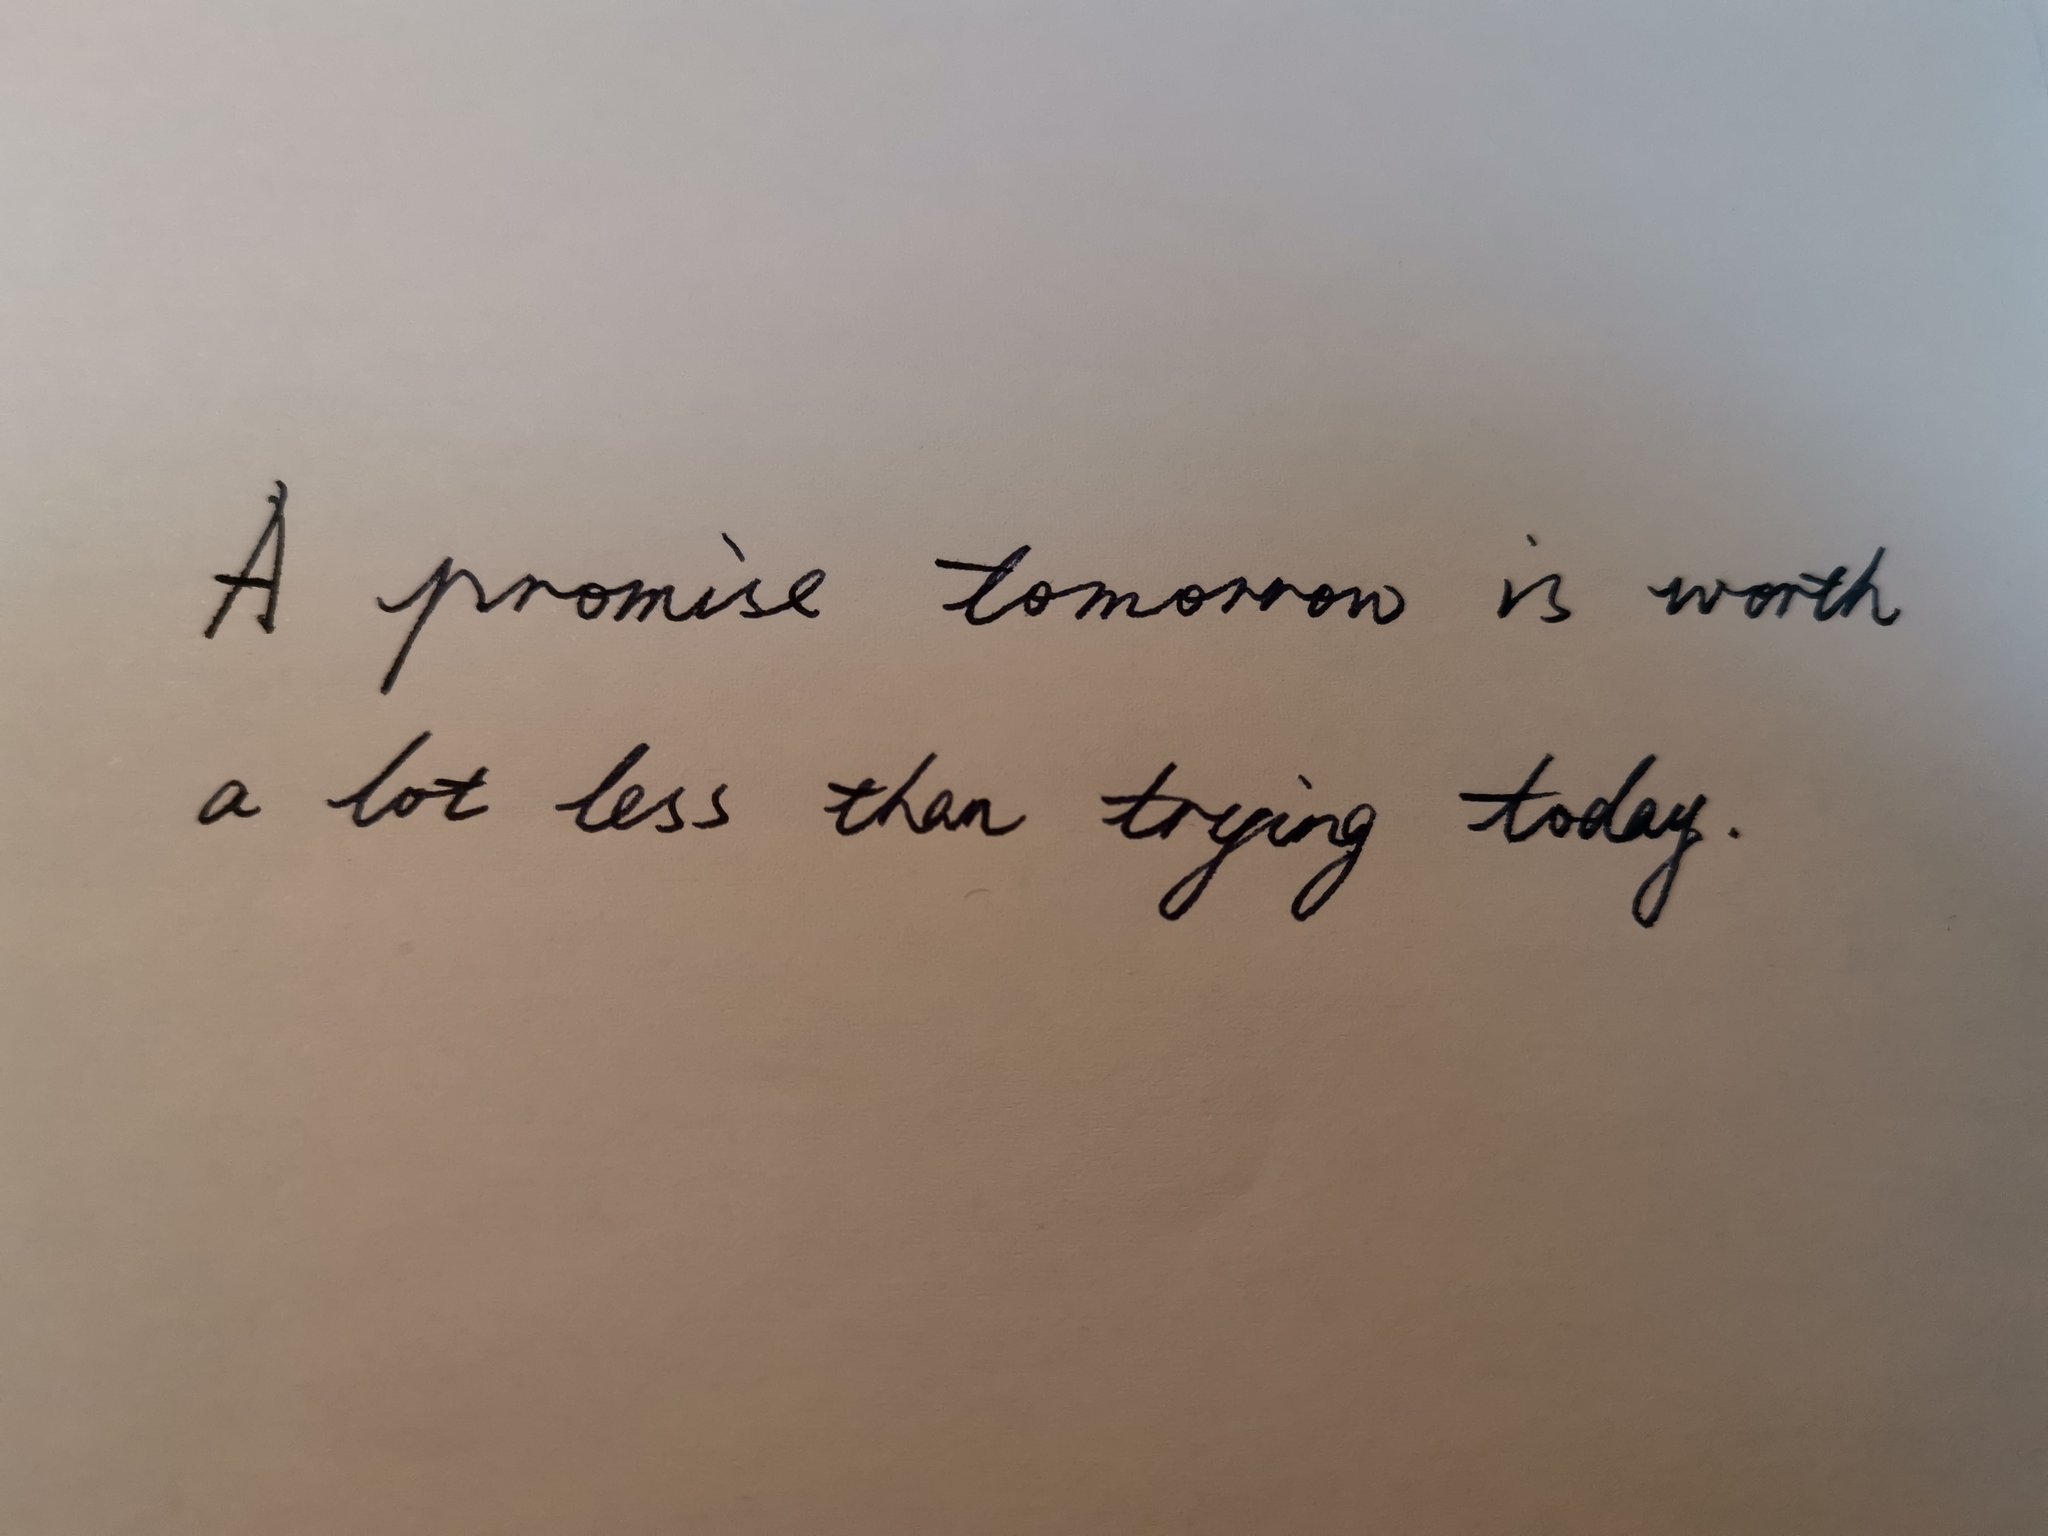 A promise tomorrow is worth
a lot less than trying today.